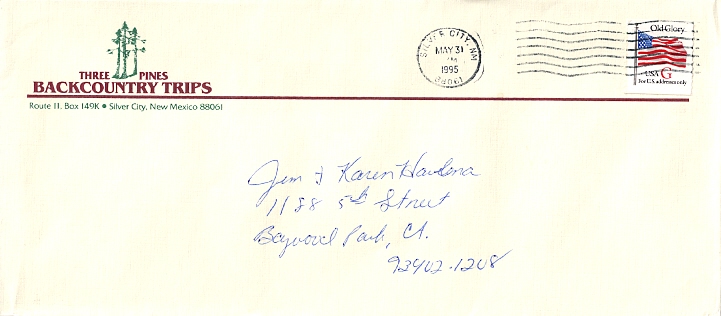 THREE PINES
BACKCOUNTRY TRIPS
Route 11, Box 149K • Silver City, New Mexico 88061
SILVER CITY, NM
MAY 31
1995
88061
Old Glory
USA G
For U.S. addresses only
Jim & Karen Havlena
1188 5th Street
Baywood Park, CA.
93402-1208